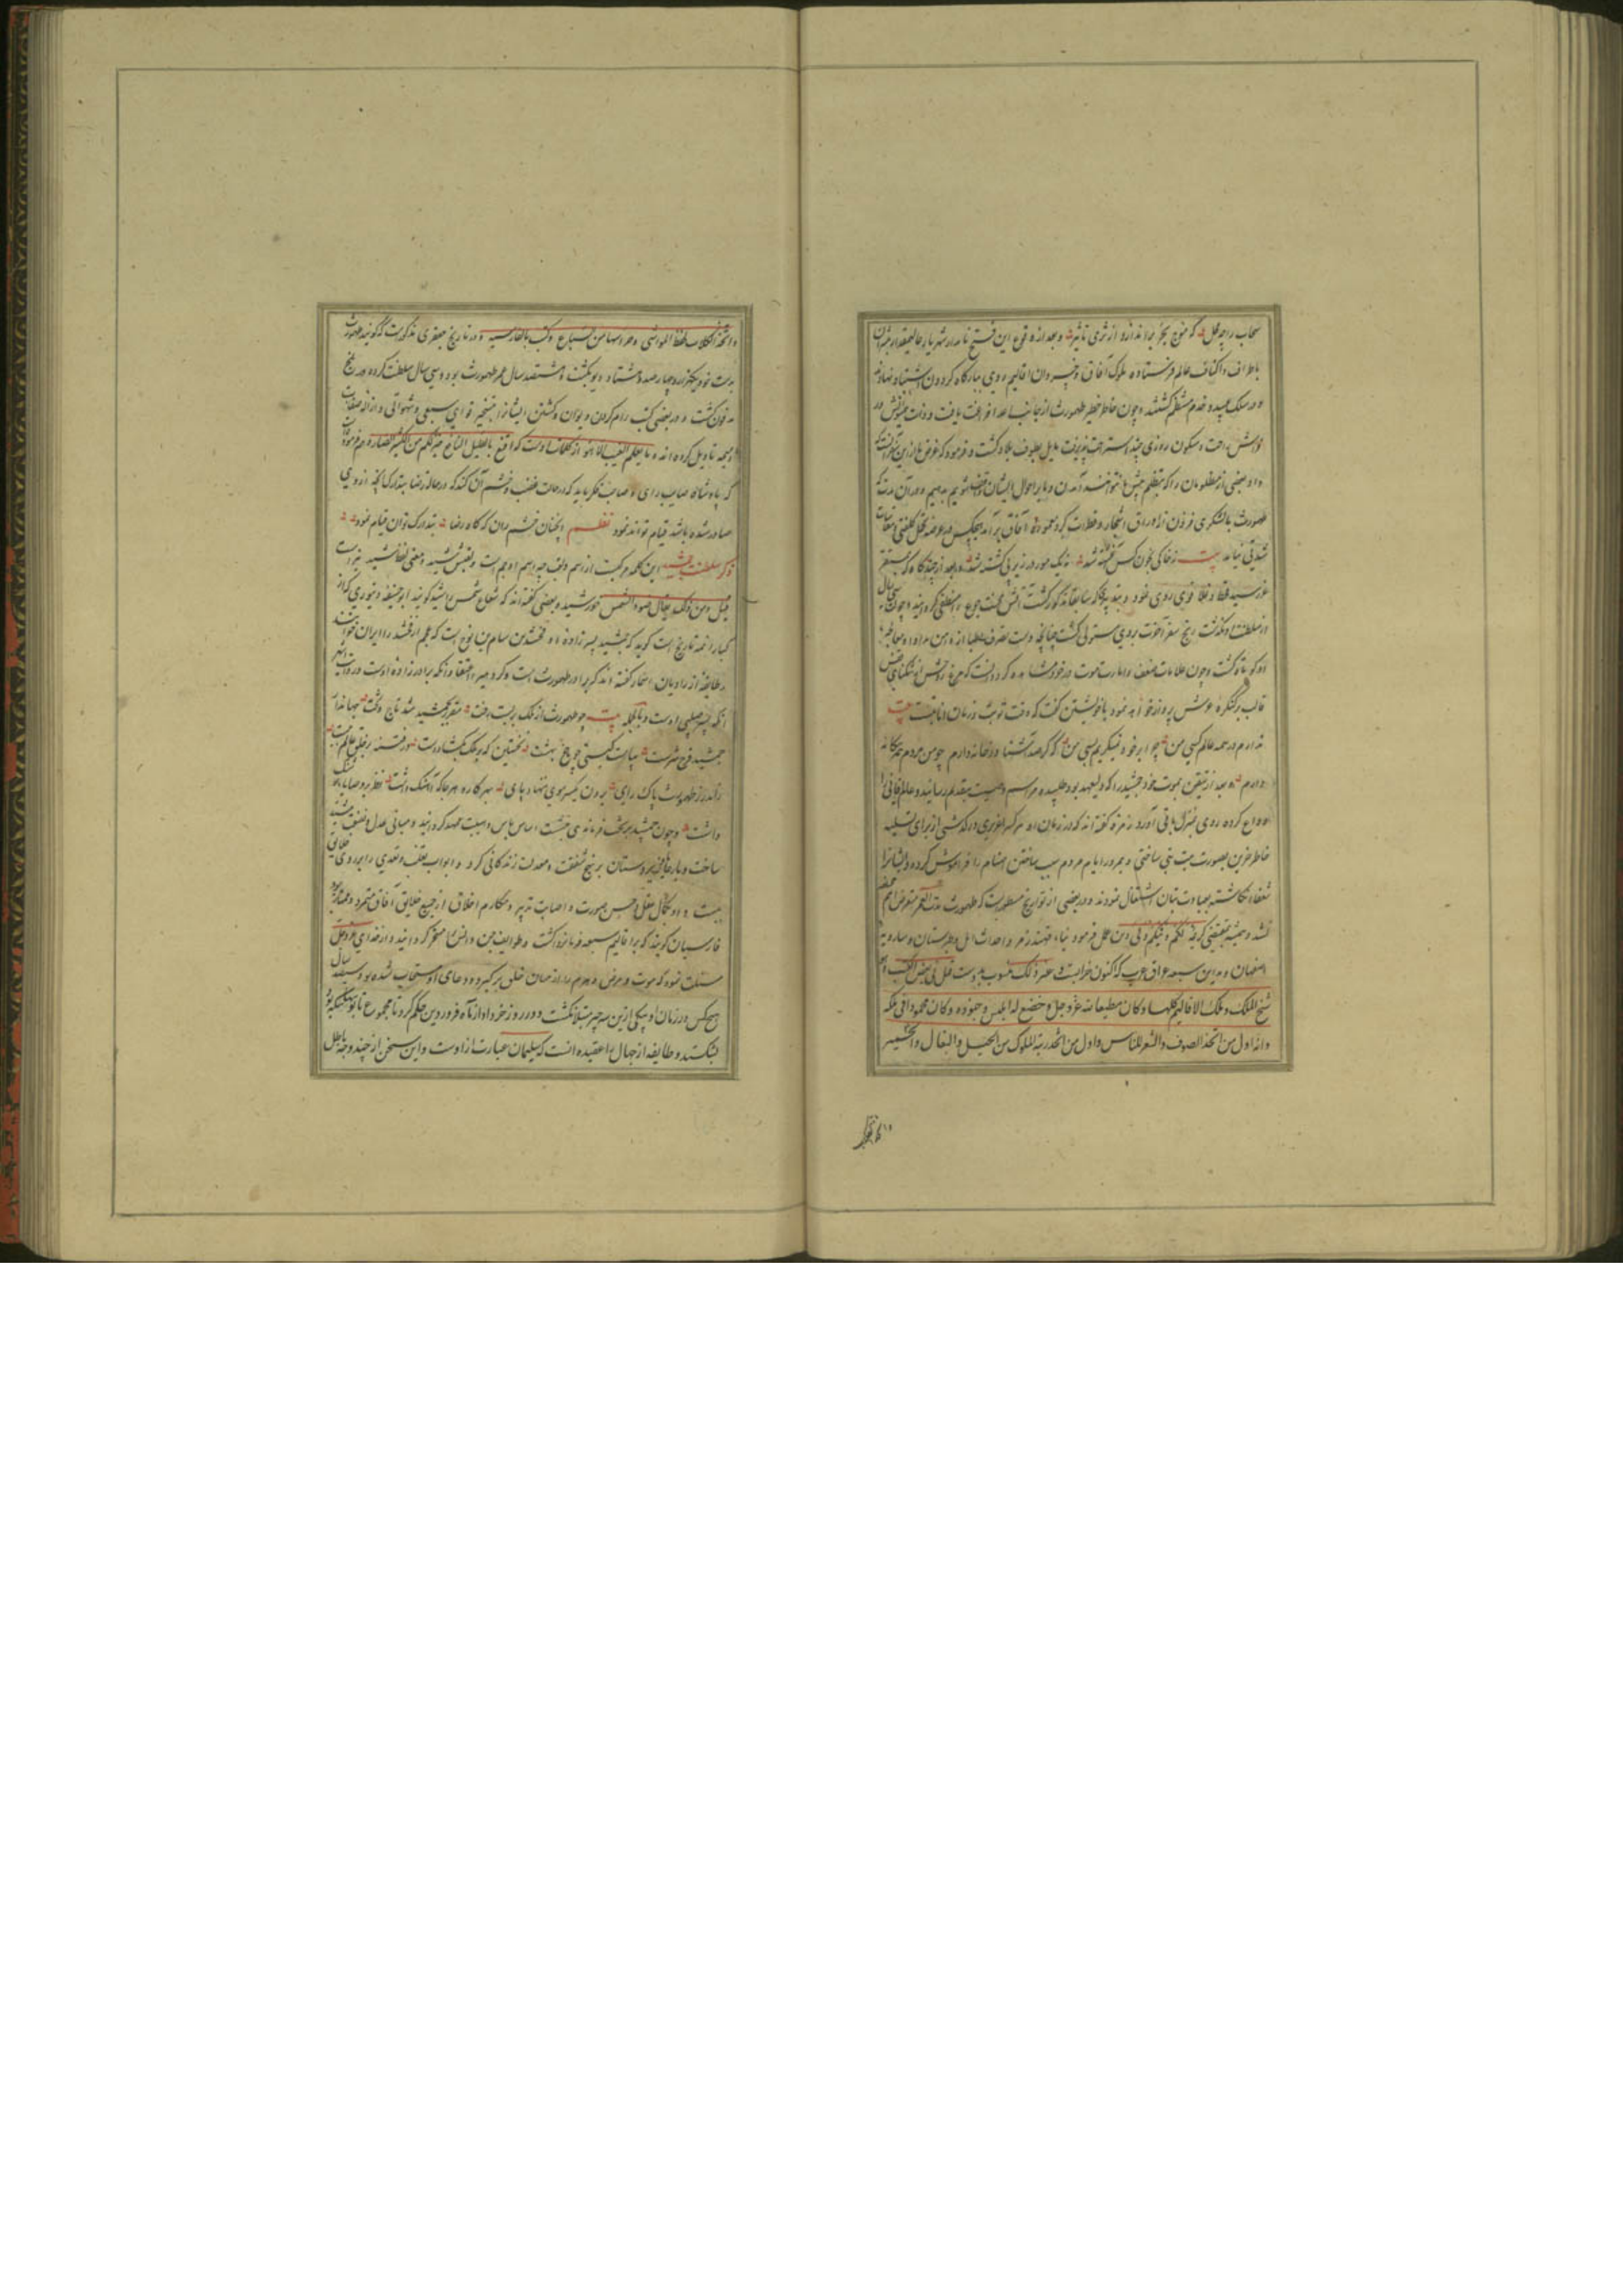 سحاب را چه خلل که موج بحر براندازد از ثری تا ثریا و بعد از وقوع این فتح نامدار شهریار عالیمقدار مبشران
باطراف و اکناف عالم فرستاده ملوک آفاق و خسروان اقالیم روی ببارگاه گردون اشتباه نهادند
و در سلک عبید و خدم منتظم گشتند و چون خاطر خطیر طهمورث از جانب اعدا فراغت یافت و ذات همایونش در
روزی چند استراحت پذیرفت مایل بطوف بلاد گشت و فرمود که غرض ما از این آنست که
داد بعضی از مظلومان را که بتظلم پیش ما نتوانند آمدن و ما بر احوال ایشان واقف شویم بدهیم و در آن مدت که
طهمورث با لشکری فزون از اوراق اشجار و قطرات گرد معموره آفاق برآمد هیچکس در عرضه تحمل کلفتی و مقاسات
شدتی نیامد بیت نه خاکی بخون کس آغشته شد نه یک مور در زیر پی کشته شد و بعد از چندگاه که بمستقر
عز رسید قحط و غلا قوی روی نمود و بتدبیری که سابقا مذکور گشت آتش محنت جوع را منطفی گردانید و چون سی سال
از سلطنت او بگذشت رنج سفر آخرت بروی مستولی گشت چنانچه دست تصرف اطبا از دامن مداوا و معالجه
او کوتاه گشت و چون علامات ضعف و امارت موت در خود مشاهده کرد دانست که مرغ روحش از تنگنای قفس
قالب بر کنگره عرش پرواز خواهد نمود با خویشتن گفت که وقت توبت و زمان انابتست بیت
ندارم در همه عالم کسی من چرا بر خود نگریم بسی من که گر صد آشنا در خانه دارم چو من مردم همه بیگانه
دارم و بعد از تیقن بموت خود جمشید را که ولیعهد بود طلبیده مراسم وصیت بتقدیم رسانید و عالم فانی را
وداع کرده روی بمنزل باقی آورد زمره گفته اند که در زمان او هر کرا عزیزی درگذشتی از برای تسلیه
خاطر حزین بصورت میت بتی ساختی و بمرور ایام مردم سبب ساختن اصنام را فراموش کرده و ایشانرا
شفعا انگاشته بعبادت بتان اشتغال نمودند و در بعضی از تواریخ مسطورست که طهمورث مدت العمر متعرض هیچ
نشد و همیشه بمقتضی کریمه لکم دینکم ولی دین عمل فرمود بناء قهندز مرو و احداث آمل و طبرستان و سارویه
اصفهان و مداین سبعه عراق عرب که اکنون خرابست و غیر ذلک منسوب بدوست قیل فی بعض الکتب انه
شخ الملک و ملک الاقالیم کلها و کان مطیعا لله عز و جل و خضع له ابلیس و جنوده و کان محمودا فی ملکه
و انه اول من اتخذ الصوف و الشعر للناس و اول من اتخذ زینة الملوک من الخیل و البغال و الحمیر
و اتخذ الکلاب لحفظ المواشی و حراستها من السباع و کتب بالفارسیه و در تاریخ جعفری مذکورست که گویند طهمورث
بدست خود یکهزار و چهار صد و هشتاد دیو بکشت و هشتصد سال عمر طهمورث بود و سی سال سلطنت کرده در بلخ
مدفون گشت و در بعضی کتب رام کردن دیوان و کشتن ایشانرا بتسخیر قوای سبعی و شهوانی و ازاله صفات
ذمیمه تاویل کرده اند و ما یعلم الغیب الا هو از کلمات اوست که اقنع بالقلیل النافع خیر لکم من الکثیر الضار و هم فرموده
که پادشاه صایب رای و صاحب فکر باید که در حالت غضب و خشم آن کند که در حالت رضا بتدارک آنچه از وی
صادر شده باشد قیام تواند نمود نظم آنچنان خشم ران که گاه رضا بتدارک توان قیام نمود
ذکر سلطنت جمشید این کلمه مرکبست از اسم و لقب چه اسم او جم است و لقبش شید و معنی لفظ شید نیرست
قیل و من ذلک یقال لضوء الشمس خورشید و بعضی گفته اند که شعاع شمس را شید گویند ابو حنیفه دینوری که از
کبار ائمه تاریخ است گوید که جمشید پسر زاده ارفخشد بن سام بن نوح است که عجم ارفخشد را ایران خوانند
و طایفه از راویان اخبار گفته اند که برادر طهمورث است و گروهی را اعتقاد آنکه برادر زاده اوست و روایت اشهر
آنکه پسر صلبی اوست و بالجمله بیت چو طهمورث از ملک بربست رخت مقرر بجمشید شد تاج و تخت جهاندار
جمشید فرخ سرشت بیاراست گیتی چو باغ بهشت نخستین که بر ملک بگشاد دست در فتنه بر خلق عالم ببست
ز اندرز طهمورث پاک رای برون یک سر موی ننهاد پای بهر کار و هر جا که آهنگ داشت نظر بر وصایای هوشنگ
داشت و چون جمشید بر تخت فرماندهی نشست اساس باس و هیبت ممهد گردانید و مبانی عدل و نصفت مشید
ساخت و با رعایا و زیردستان بر نهج شفقت و معدلت زندگانی کرد و ابواب تغلب و تعدی را بر روی خلایق
ببست و او بکمال عقل و حسن صورت و اصابت تدبیر و مکارم اخلاق از جمیع خلایق آفاق متفرد و ممتاز بود
فارسیان گویند که بر اقالیم سبعه فرمانروا گشت و طوایف جن و انس را مسخر گردانید و از خدای عز و جل
مسئلت نمود که موت و مرض و هرم را از میان خلق برگیرد و دعای او مستجاب شده بود سیصد سال
هیچ کس در زمان او بیکی ازین سه چیز مبتلا نگشت و در روز خرداد از ماه فروردین حکم کرد تا مجموع تابوتها که بود
بشکستند و طایفه از جهال را عقیده آنست که سلیمان عبارت از اوست و این سخن از چند وجه باطل